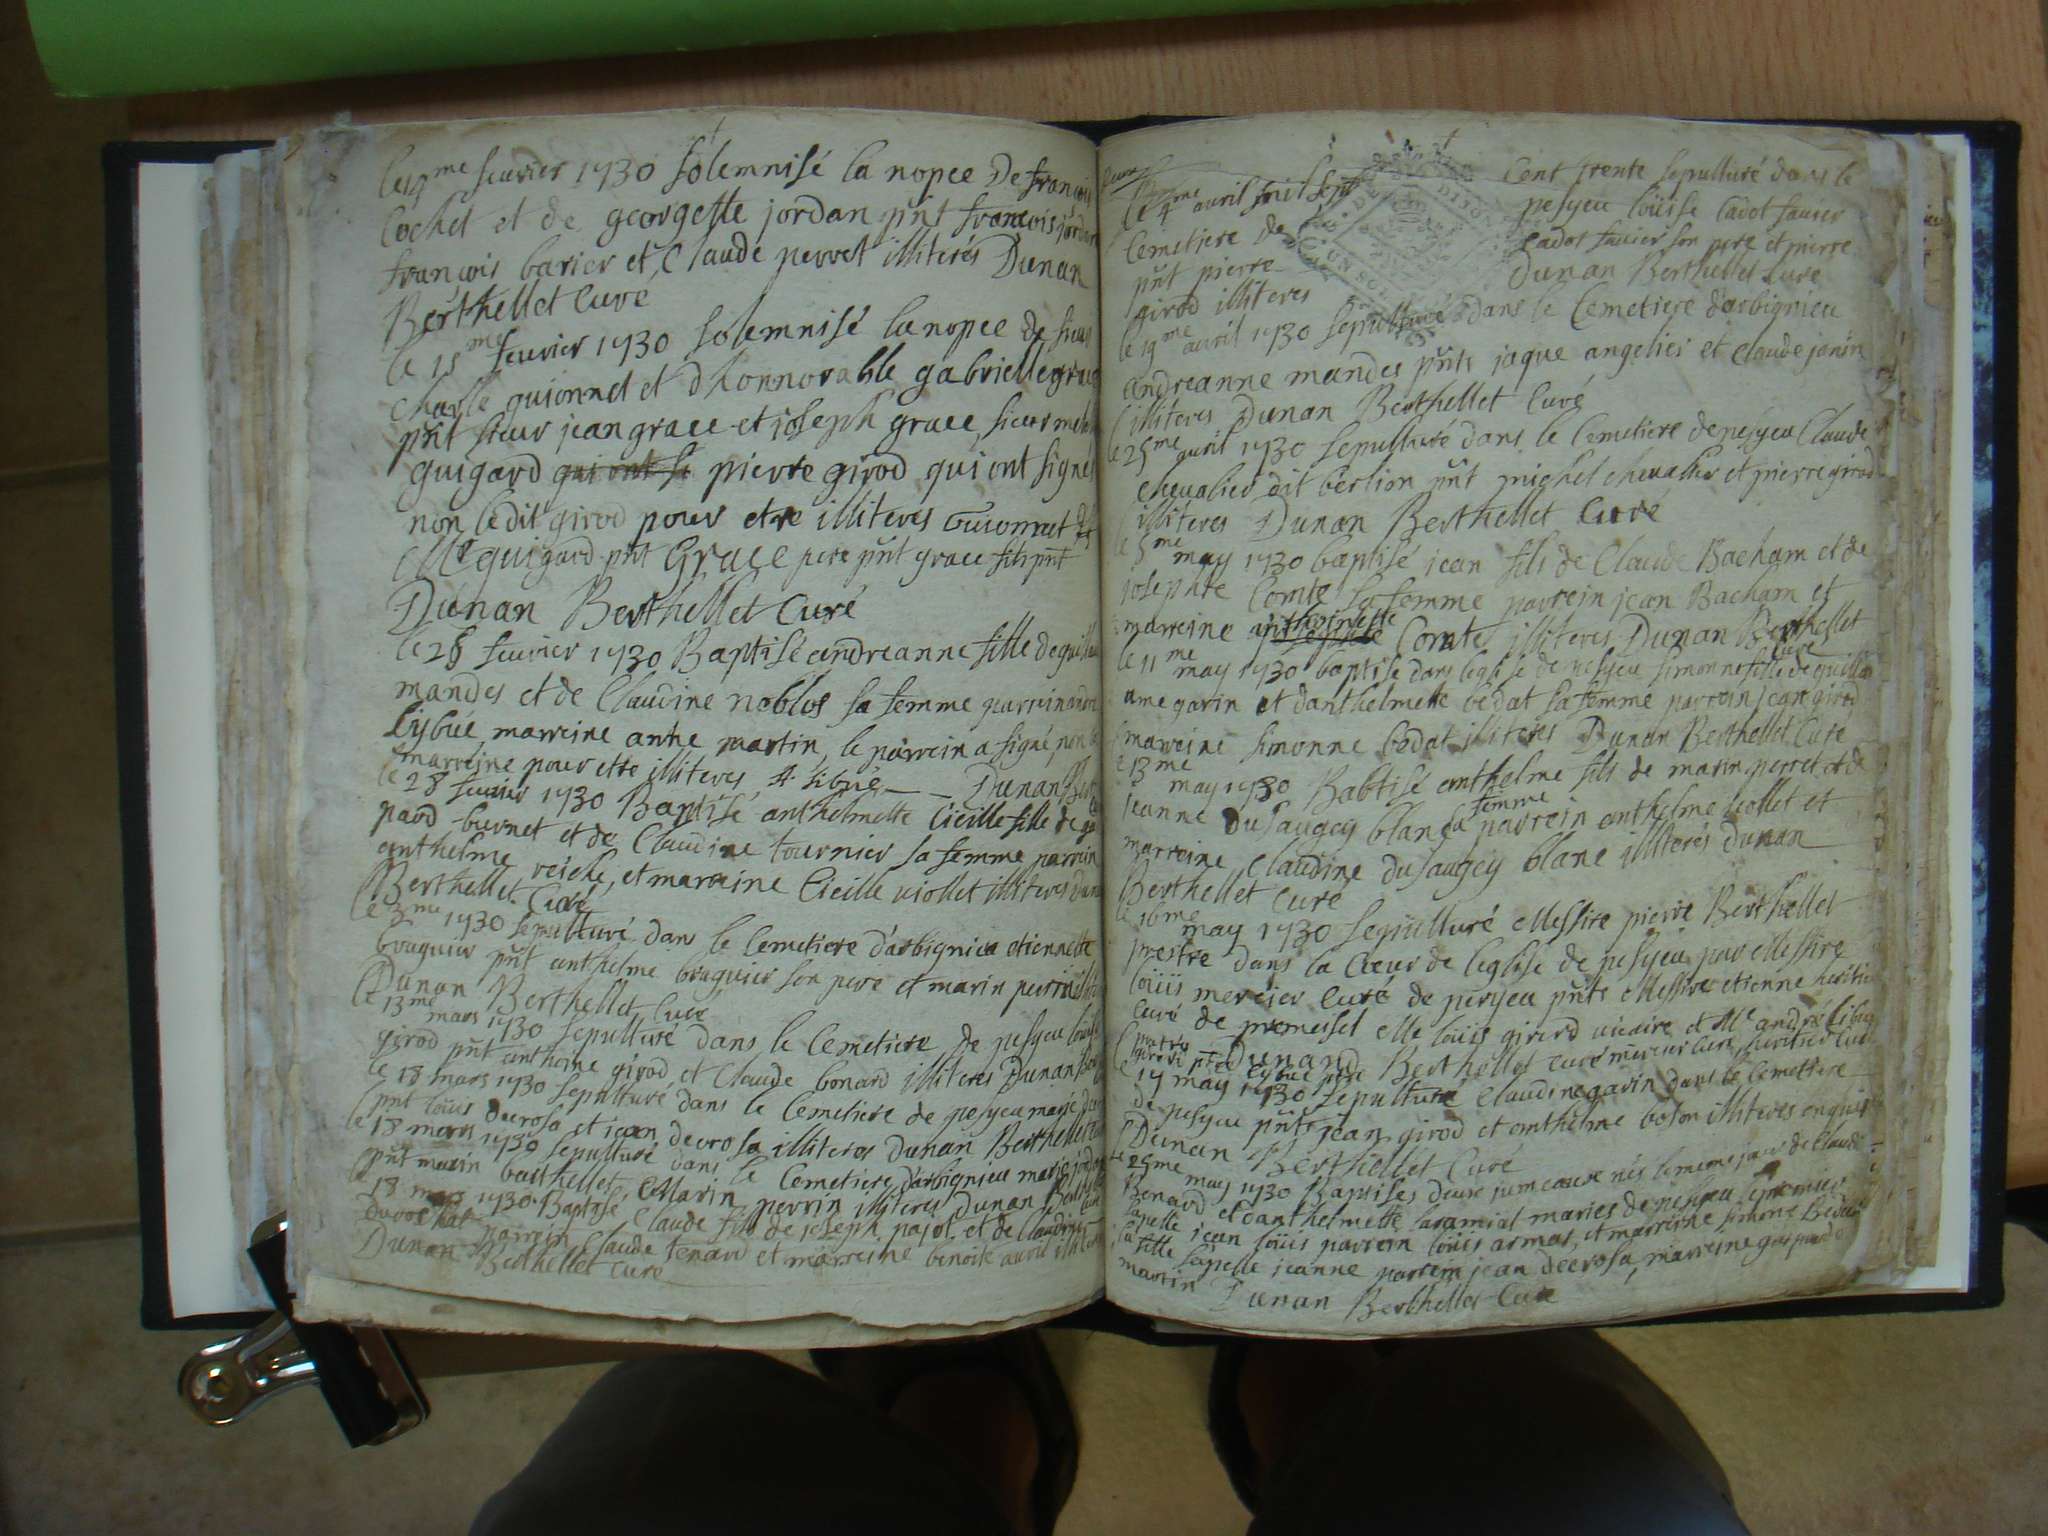 fevrier 1730 solemnisé la nopce De françois
Cochet et de georgette jordan pñt françois jordan
françois barier et Claude perret illiterés Dunan
Berthellet Curé
le 15me fevrier 1730 solemnisé la nopce de sieur
Charle guionnet et d'honnorable gabrielle grace
pñt sieur jean grace et joseph grace, sieur
guigard qui ont si pierre girod qui ont signés
non ledit girod pour etre illiteres Guionnet
Mr guigard pñt Grace pere pñt grace fils pñt
Dunan Berthellet Curé
le 28 fevrier 1730 Baptisé andreanne fille de
mandes et de Claudine noblos sa femme parrein
Lybué marreine anthe martin, le parrein a signé, non la
marreine pour etre illiteres A. Libué Dunan
le 28 fevrier 1730 Baptisé anthelmette Cicille fille de
pard burnet et de Claudine tournier sa femme parrein
anthelme reiche, et marreine Cicille viollet illiteres
Berthellet Curé
le 3me 1730 sepulturé dans le Cemetiere d'arbignieu etiennette
braquier pñt anthelme braquier son pere et marin perrin
Dunan Berthellet Curé
le 13me mars 1730 sepulturé dans le Cemetiere de pesyeu
girod pñt anthoine girod et Claude bonard illiteres Dunan
le 18 mars 1730 sepulturé dans le Cemetiere de pesyeu marie
pñt loüis decrosa et jean decrosa illiteres Dunan Berthellet
le 18 mars 1730 sepulturé dans le Cemetiere d'arbignieu marie
pñt marin berthellet, Marin perrin illiteres Dunan
18 mars 1730 Baptisé Claude fils de joseph pajot et de Claudine
parrein Claude tenard et marreine benoite
Dunan Berthellet Curé
le 4me avril mil sept Cent trente sepulturé dans le
Cemetiere de pesyeu loüise Cadot
pñt pierre Cadot son pere et pierre
girod illiteres Dunan Berthellet Curé
le 19me avril 1730 sepulturé dans le Cemetiere d'arbignieu
andreanne mandes pñts jaque angelier et Claude janin
illiteres Dunan Berthellet Curé
le 25me avril 1730 sepulturé dans le Cemetiere de pesyeu Claude
chevalier dit berlion pñt michel chevallier et pierre girod
illiteres Dunan Berthellet Curé
le 5me may 1730 baptisé jean fils de Claude Bacham et de
josephte Comte sa femme parrein jean Bacham et
marreine anthoinette Comte illiteres Dunan Berthellet
Curé
le 11me may 1730 baptisé dans leglise de pesyeu simonne fille de guill
ame garin et danthelmette bedat sa femme parrein jean girod
marreine simonne bedat illiteres Dunan Berthellet Curé
le 13me may 1730 Babtisé anthelme fils de marin perret et de
jeanne dusaugey blanc sa femme parrein anthelme collet et
marreine Claudine dusaugey blanc illiterés Dunan
Berthellet Curé
le 16me may 1730 sepulturé Messire pierre Berthellet
prestre dans la Cœur de leglise de pesyeu par Messire
loüis mercier Curé de pesyeu pñts Messire etienne
Curé de premeisel Me loüis girard vicaire et Mr andré
Dunand Berthellet curé
17 may 1730 sepulturé Claudine garin dans le Cemetiere
de pesyeu pñts jean girod et anthelme bolon illiteres
Dunan Berthellet Curé
Le 25me may 1730 Baptisés deux jumeaux nés le meme jour de Claude
Benard et danthelmette mariés de pesyeu
lapelle jean loüis parrein loüis armas, et marreine simone
la fille sapelle jeanne parrein jean decrosa, marreine
martin Dunan Berthellet Curé